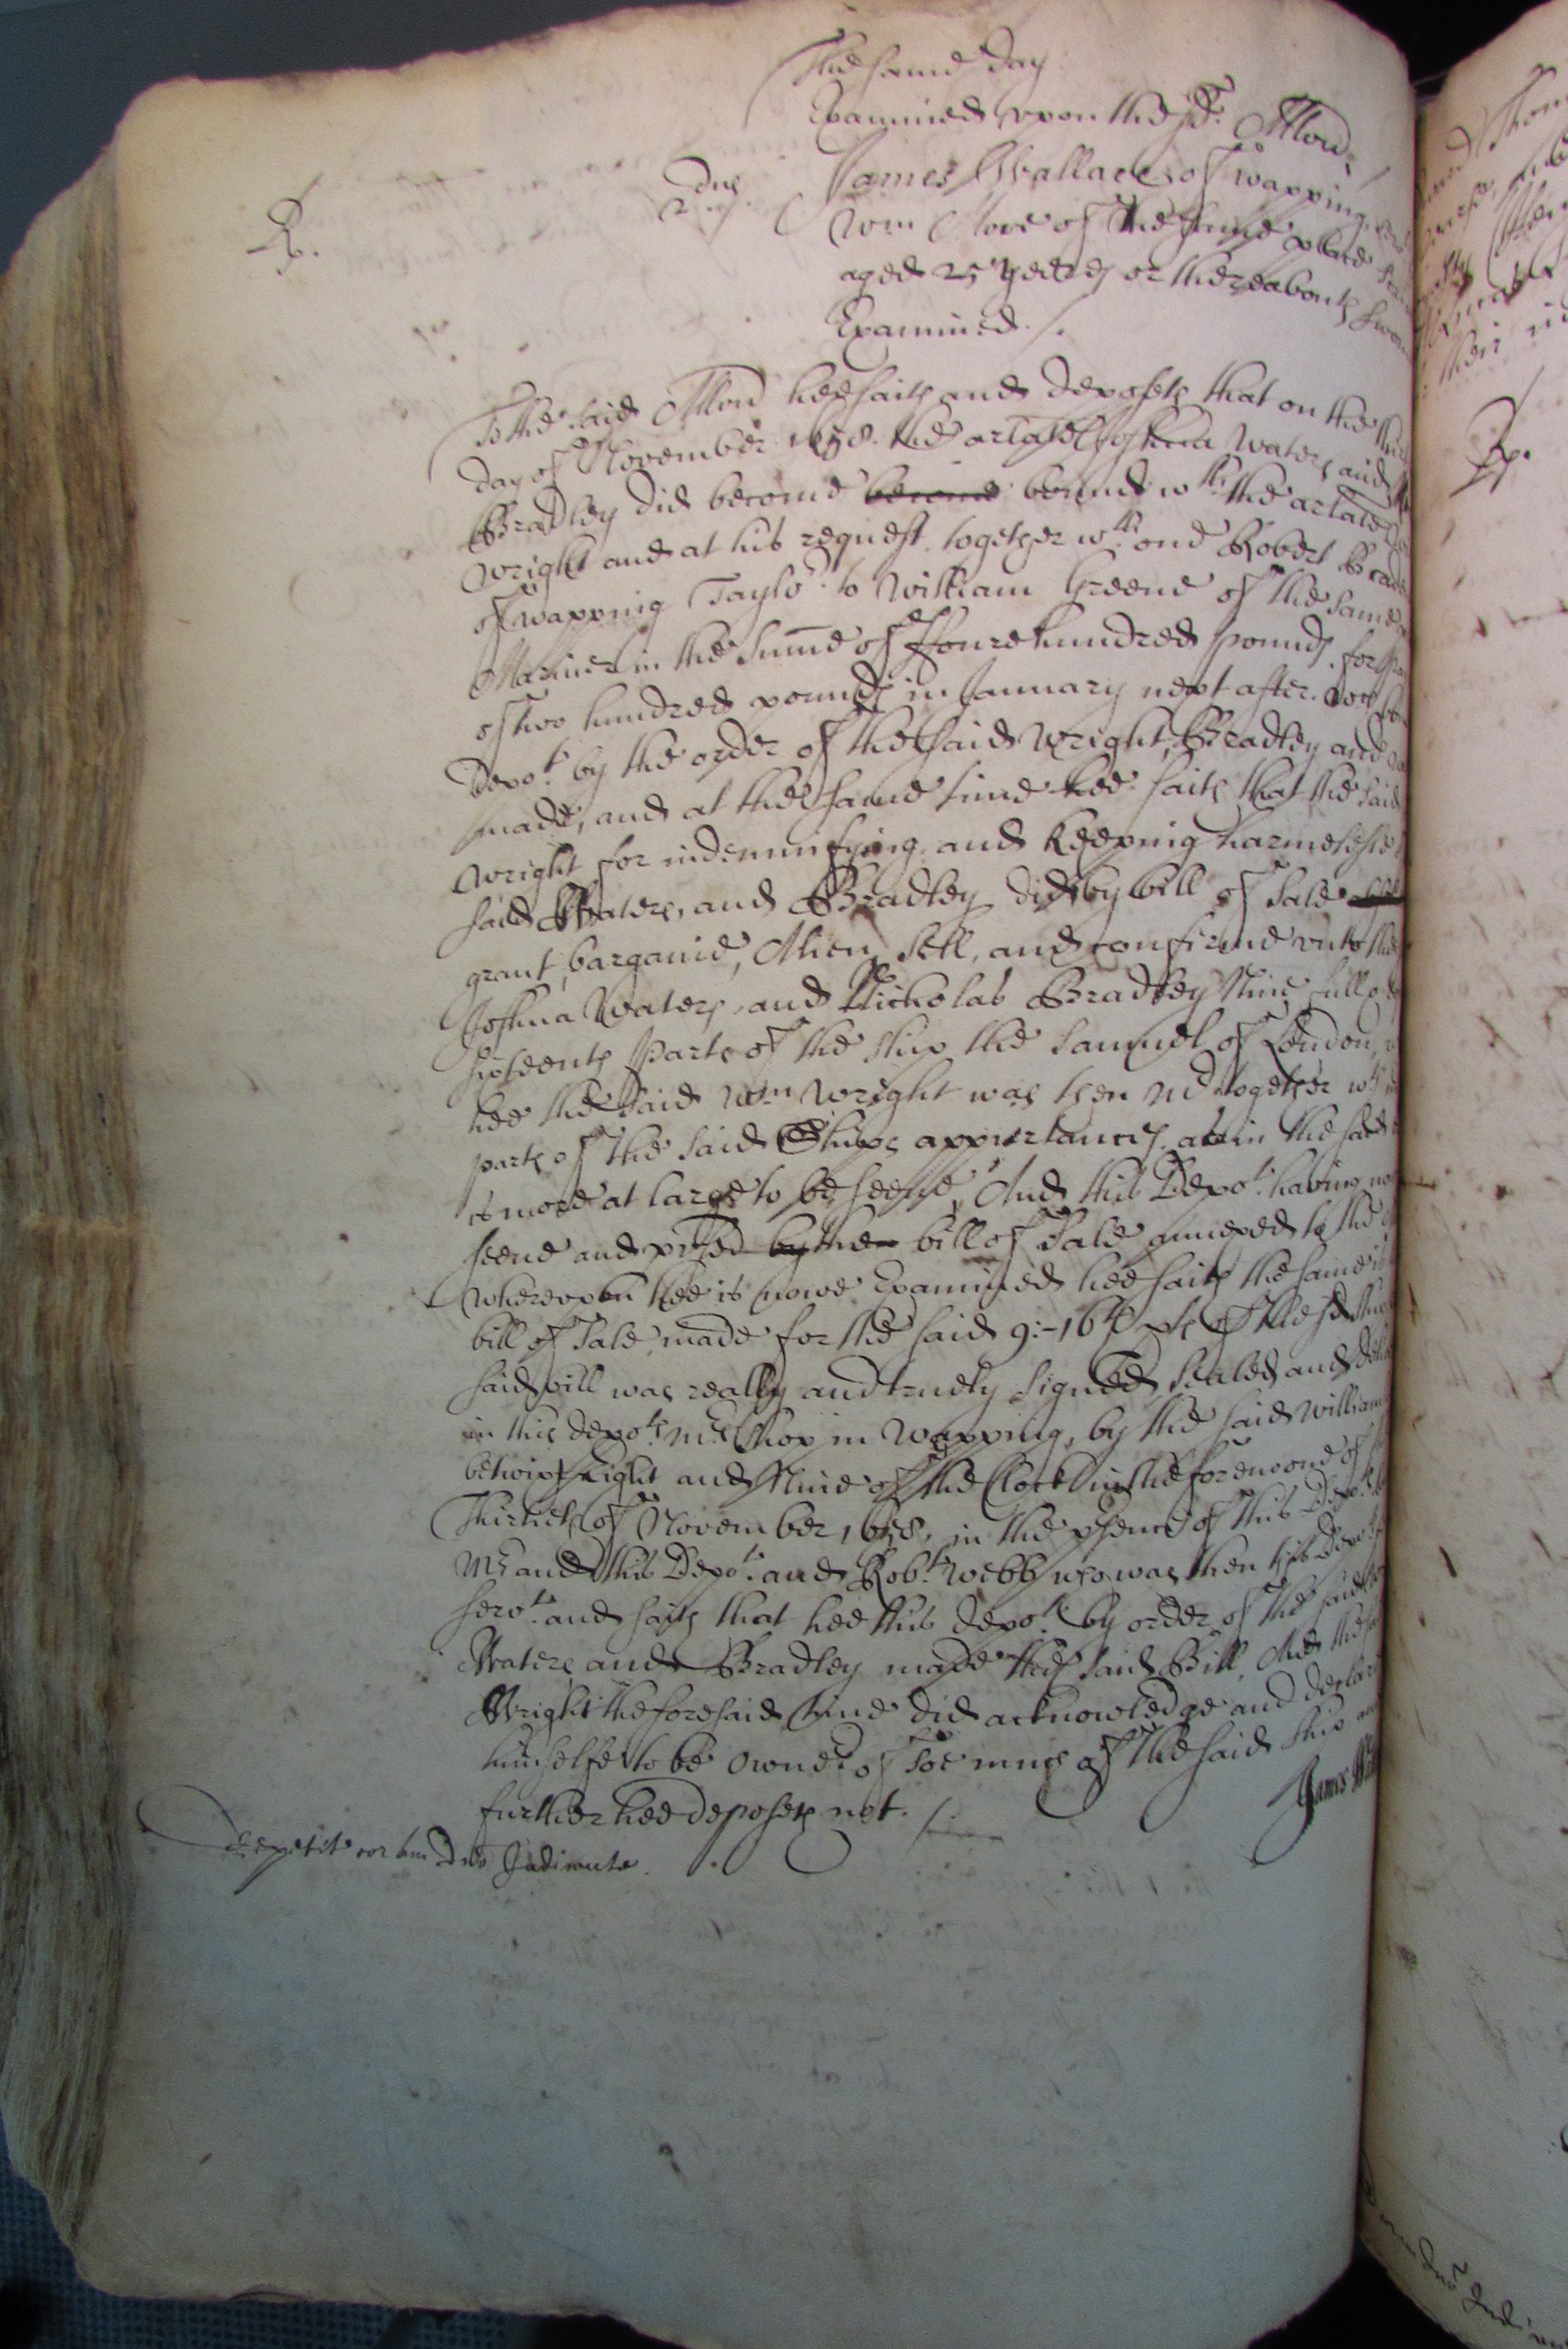 The same day
Examined vpon the sd. Allon.
R.
2dus.
James Wallace of wapping
Wm More of the same place
aged 25 yeeres or thereabouts sworne
Examined. /.
To the said Allon hee saith and deposeth that on the
day of November 1658. the arlate Joshua Waters and
Bradley did become become bound wth the arlate
Wright and at his request together wth one Robert
of wapping Taylor to William Greene of the same
Mariner in the Sume of Foure hundred pounds for
of two hundred pounds in January next after.
Depot. by the order of the said Wright, Bradley and
made, and at the same time hee saith that the said
Wright for indemnifying and keeping harmelesse
said Waters, and Bradley did by bill of Sale
grant, bargaine, Alien, Sell, and confirme vnto the
Joshua Waters, and Nicholas Bradley Nine full
sixteenth Parts of the ship the Samuel of London,
hee the said Wm Wright was then Mr together wth
parts of the said Ships appurtances as in the said
is more at large to be seene, And this Depot. having now
seene and pvsed by the bill of Sale annexed to the
wherevpon hee is nowe Examined hee saith the same is
bill of Sale made for the said 9:-16th pts of the sd
said bill was really and truely signed, sealed and
in this depots. Mrs shop in Wapping, by the said William
betwixt Eight and Nine of the Clock in the forenoone of
Thirtieth of November 1658, in the psence of this Depots.
Mr and this Depot. and Robt. Webb who was then this Depots.
servt. and saith that hee this depot. by order of the said
Waters and Bradley made the said Bill, And the
Wright the foresaid time did acknowledge and declare
himselfe to be owner of soe much of the said ship and
further hee deposeth not. /.
James
Repetit coram Dno Judicante.